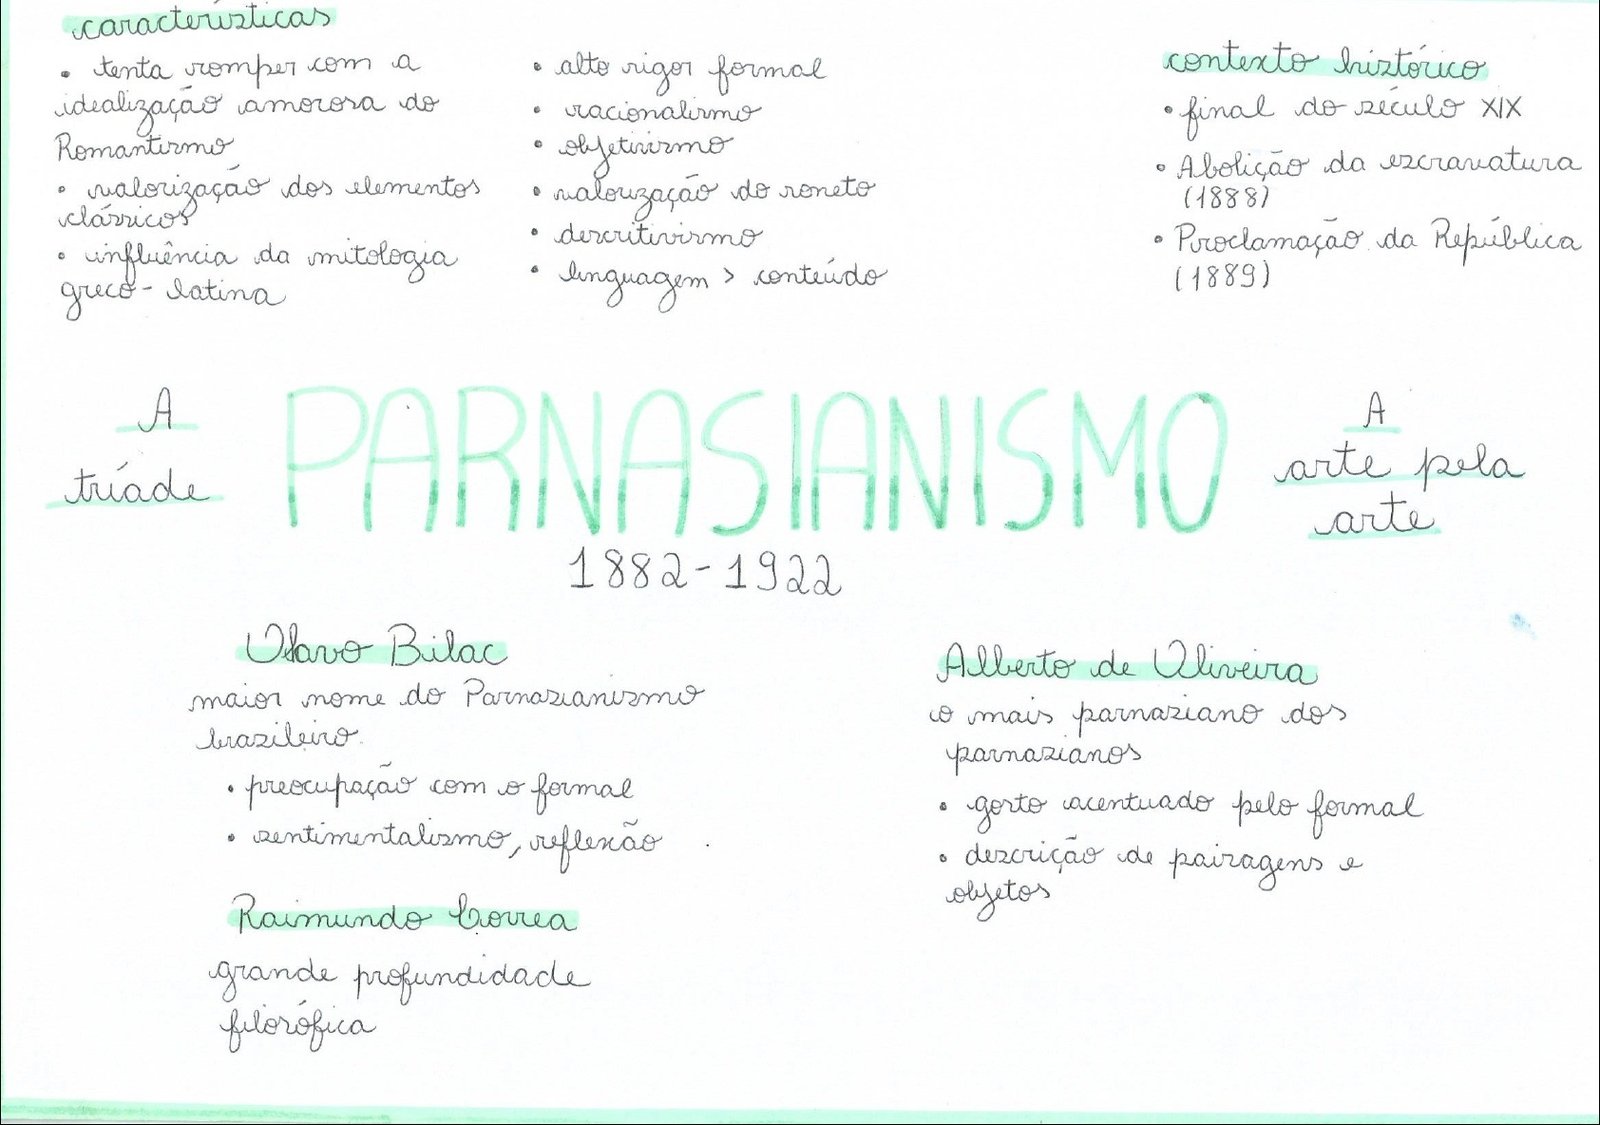 características
• tenta romper com a
idealização amorosa do
Romantismo
• valorização dos elementos
clássicos
• influência da mitologia
greco-latina
• alto rigor formal
• racionalismo
• objetivismo
• valorização do soneto
• descritivismo
• linguagem > conteúdo
contexto histórico
• final do século XIX
• Abolição da escravatura
(1888)
• Proclamação da República
(1889)
A
tríade
PARNASIANISMO
1882-1922
A
arte pela
arte
Olavo Bilac
maior nome do Parnasianismo
brasileiro.
• preocupação com o formal
• sentimentalismo, reflexão
Raimundo Correa
grande profundidade
filosófica
Alberto de Oliveira
o mais parnasiano dos
parnasianos
• gosto acentuado pelo formal
• descrição de paisagens e
objetos